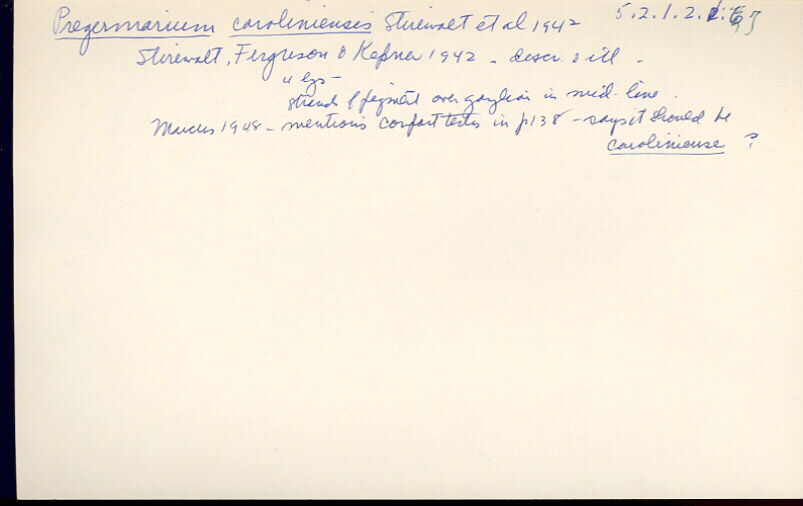 Progermarium caroliniensis Stirewalt et al 1942 5.2.1.2.
Stirewalt, Ferguson & Kepner 1942 - descr. & ill -
4 eyes -
strands of pigment over ganglion in mid-line.
Marcus 1948 - mentions compact testes in p138 - says it should be
caroliniense ?